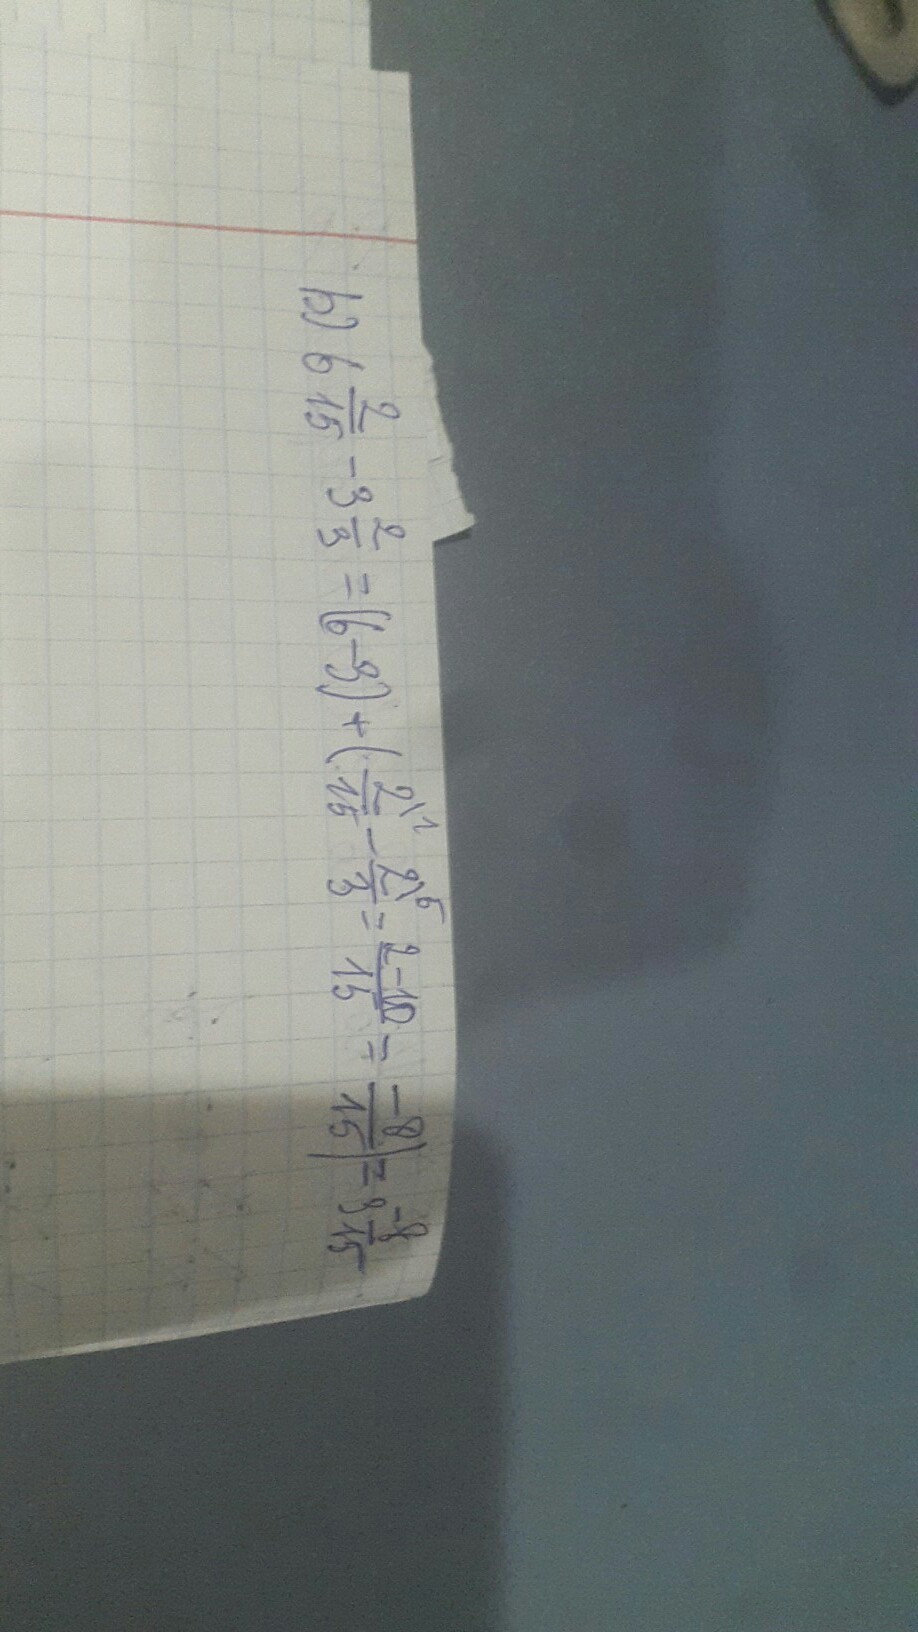 b) 6 2/15 - 3 2/3 = (6-3) + (2\1/15 - 2\5/3 = 2-10/15 = -8/15) = 3 -8/15